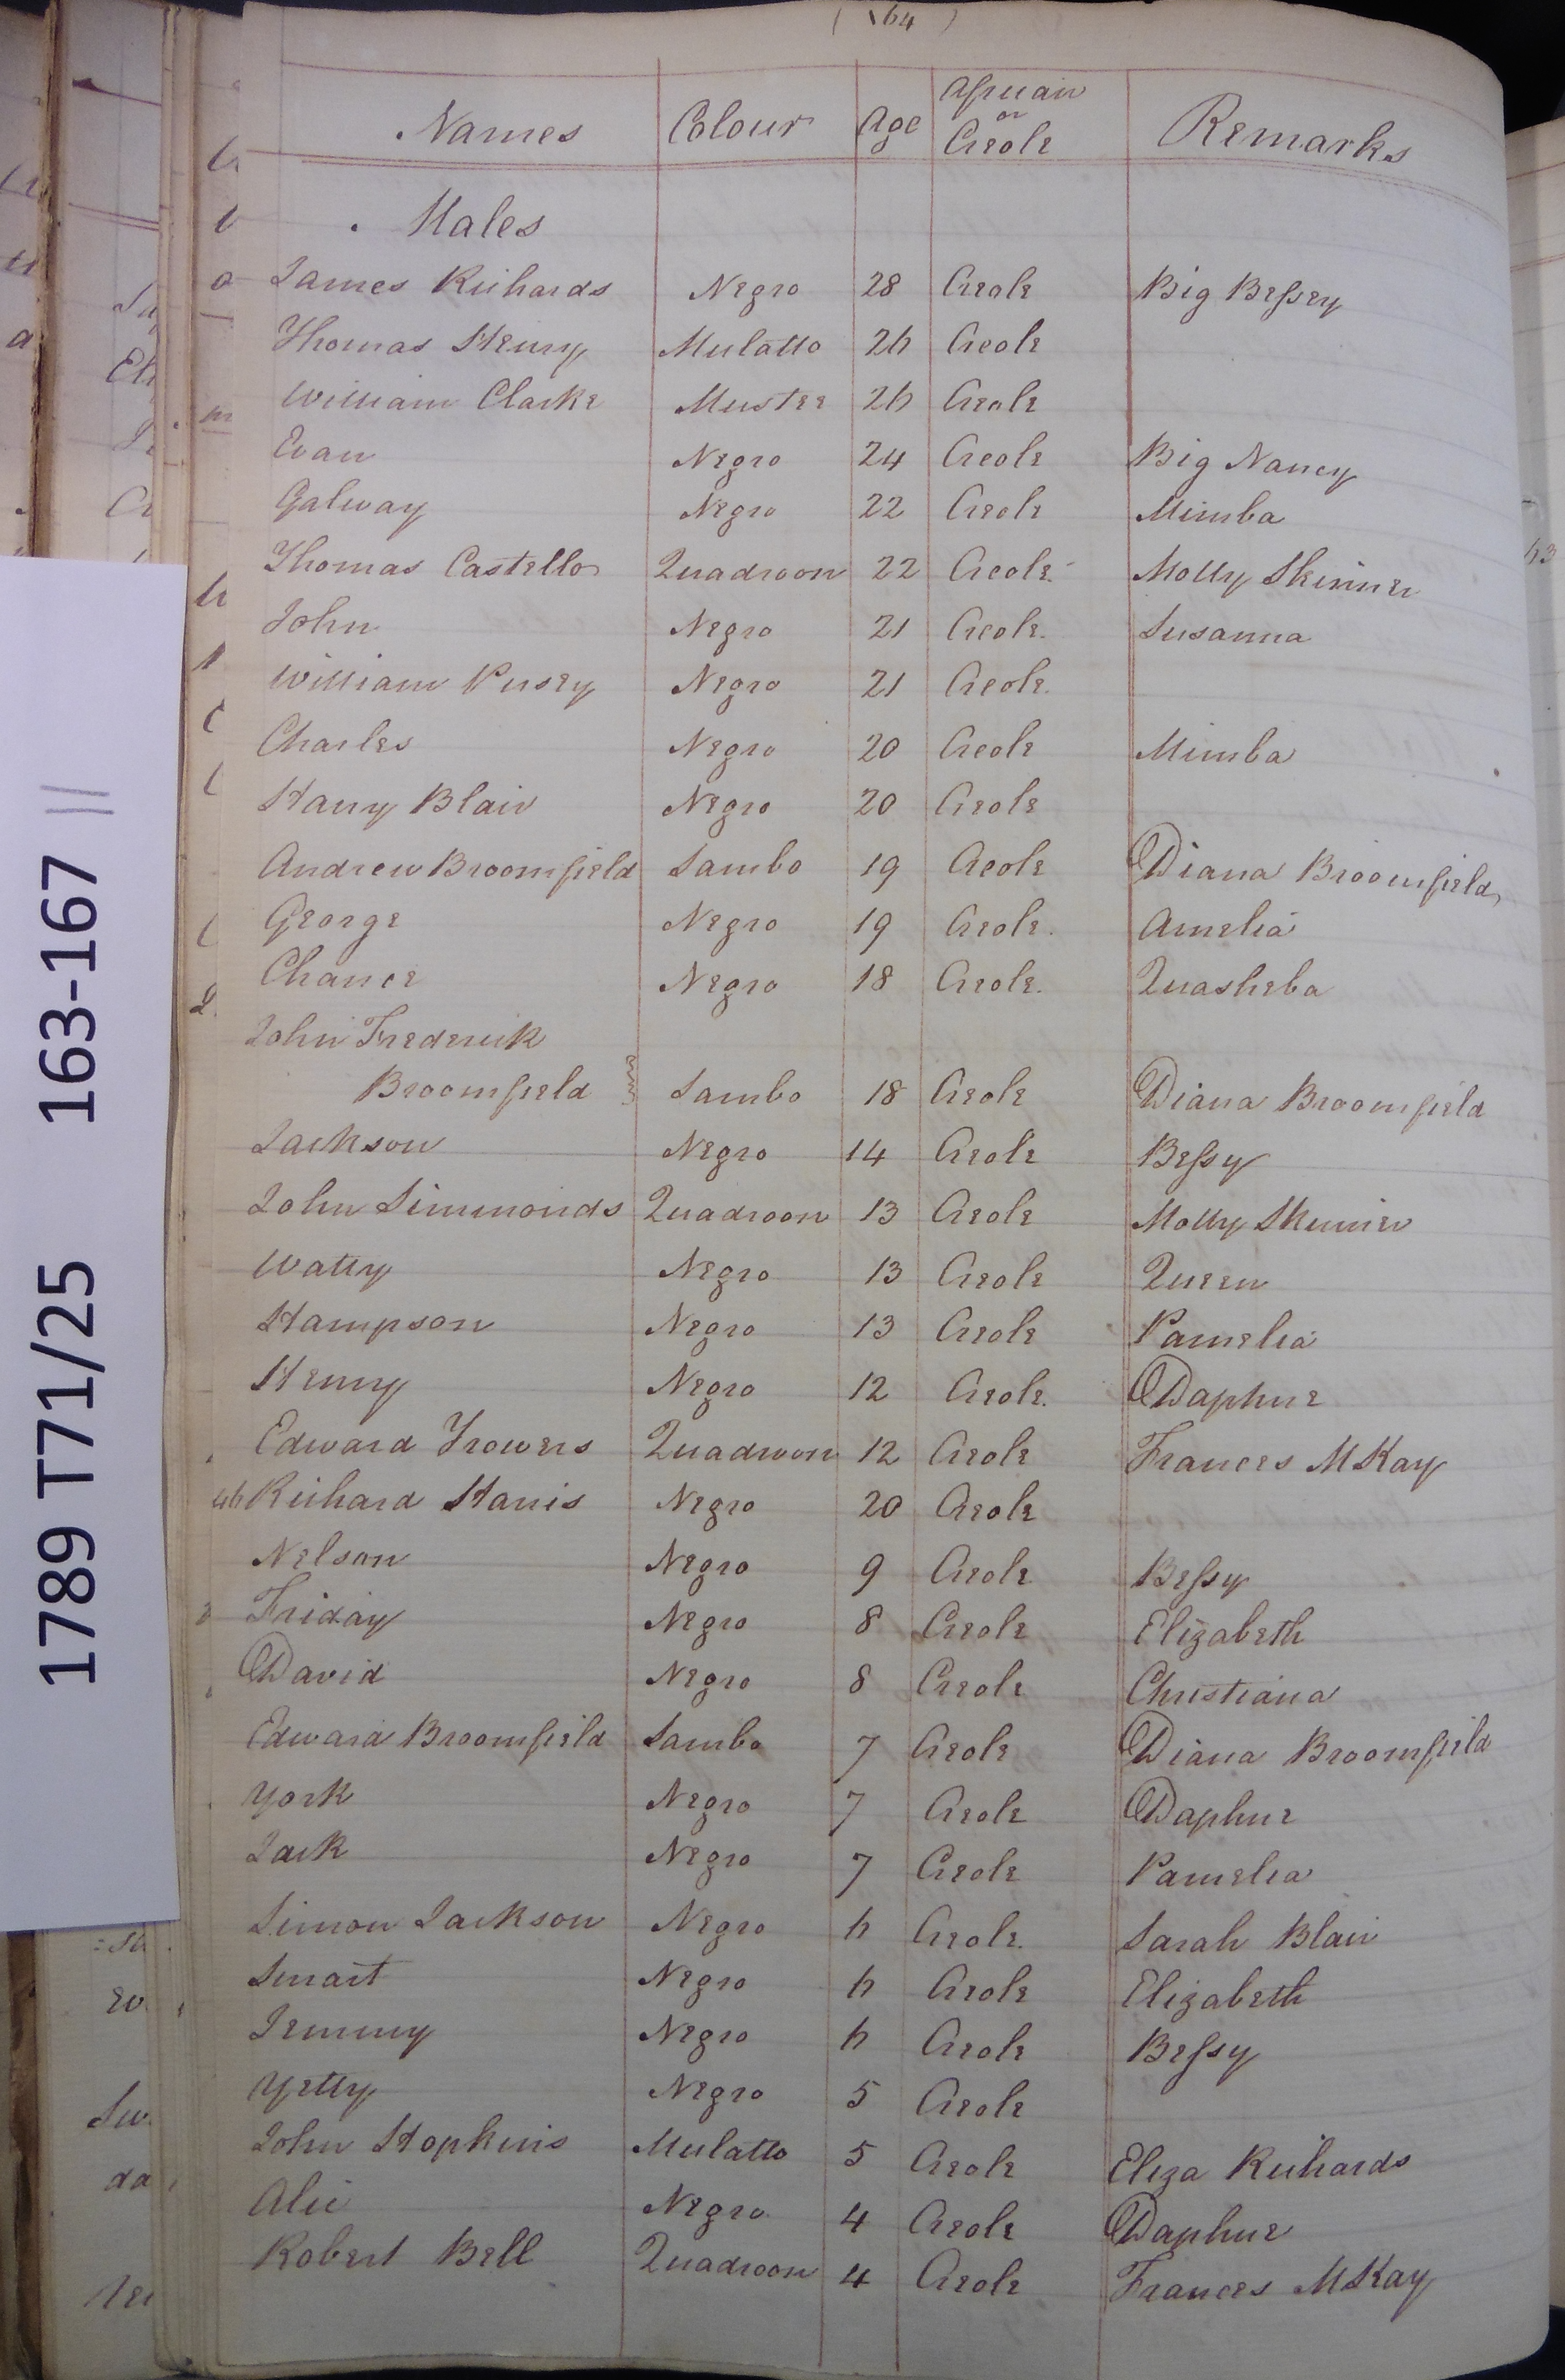 (164)
Names Colour Age African or Creole Remarks
Males
James Richards Negro 28 Creole Big Bessey
Thomas Henry Mulatto 26 Creole
William Clarke Mustee 26 Creole
Evan Negro 24 Creole Big Nancy
Galway Negro 22 Creole Mimba
Thomas Castello Quadroon 22 Creole Molly Skinner
John Negro 21 Creole Susanna
William Pusey Negro 21 Creole
Charles Negro 20 Creole Mimba
Harry Blair Negro 20 Creole
Andrew Broomfield Sambo 19 Creole Diana Broomfield
George Negro 19 Creole Amelia
Chance Negro 18 Creole Quasheba
John Frederick
Broomfield Sambo 18 Creole Diana Broomfield
Jackson Negro 14 Creole Bessy
John Simmonds Quadroon 13 Creole Molly Skinner
Watty Negro 13 Creole Queen
Hampson Negro 13 Creole Pamelia
Henry Negro 12 Creole Daphne
Edward Trowers Quadroon 12 Creole Frances McKay
Richard Harris Negro 20 Creole
Nelson Negro 9 Creole Bessy
Friday Negro 8 Creole Elizabeth
David Negro 8 Creole Christiana
Edward Broomfield Sambo 7 Creole Diana Broomfield
York Negro 7 Creole Daphne
Jack Negro 7 Creole Pamelia
Simon Jackson Negro 6 Creole Sarah Blair
Smart Negro 6 Creole Elizabeth
Jemmy Negro 6 Creole Bessy
Yetty Negro 5 Creole
John Hopkins Mulatto 5 Creole Eliza Richards
Alic Negro 4 Creole Daphne
Robert Bell Quadroon 4 Creole Frances McKay
1789 T71/25 163-167 //